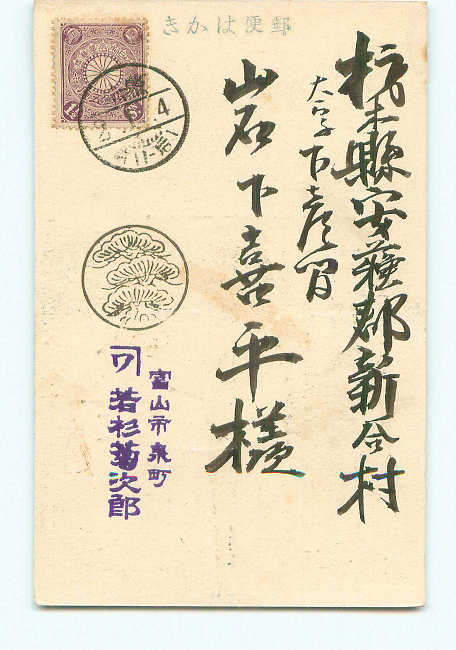 きかは便郵
栃木縣安蘇郡新合村
大字下彦間
岩下喜平様
富山市泉町
若杉菊次郎